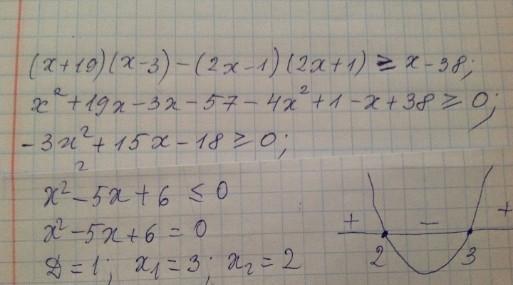 (x+19)(x-3)-(2x-1)(2x+1) ≥ x-38;
x²+19x-3x-57-4x²+1-x+38 ≥ 0;
-3x²+15x-18 ≥ 0;
2
x²-5x+6 ≤ 0
x²-5x+6 = 0
D=1; x₁=3; x₂=2
+ - +
2 3